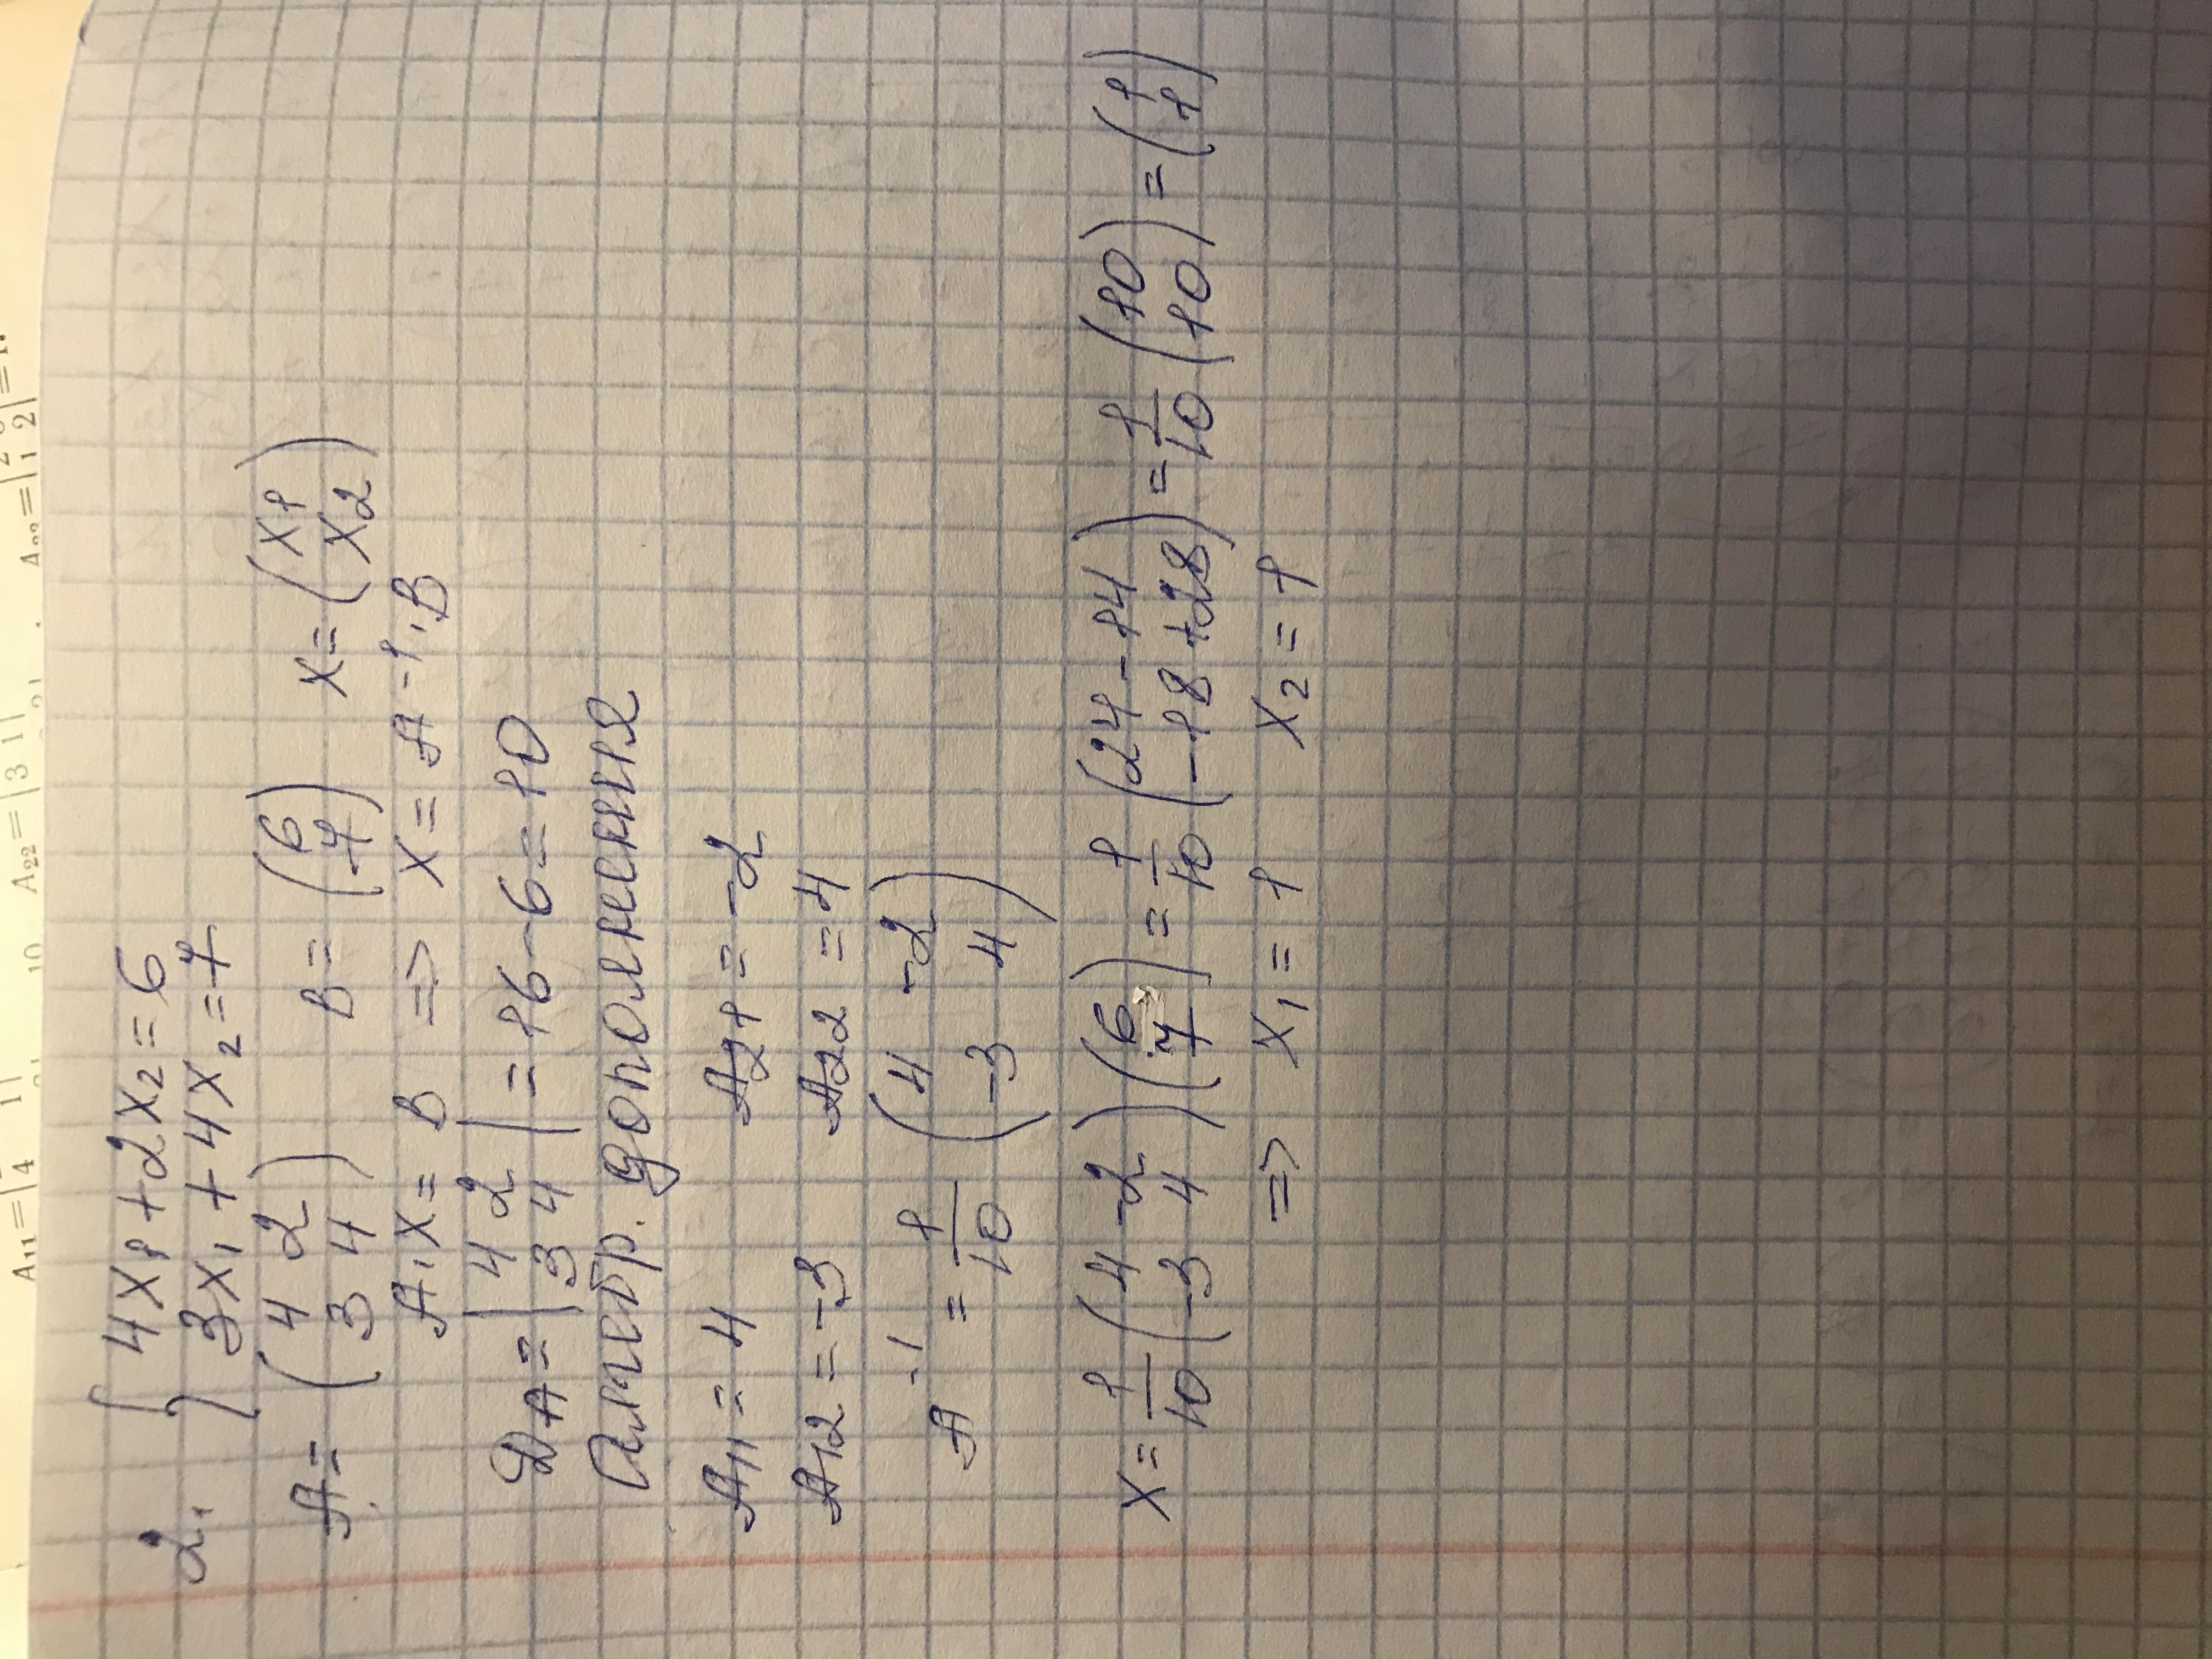 A₁₁ = |4 1| 10 A₂₂ = |3 1| A₂₃ = |1 2| = 1.
2. { 4x₁ + 2x₂ = 6
3x₁ + 4x₂ = 7
A = (4 2; 3 4) B = (6; 7) X = (x₁; x₂)
A·X = B => X = A⁻¹·B
D_A = |4 2; 3 4| = 16 - 6 = 10
Алгебр. дополнения
A₁₁ = 4 A₂₁ = -2
A₁₂ = -3 A₂₂ = 4
A⁻¹ = 1/10 (4 -2; -3 4)
X = 1/10 (4 -2; -3 4)(6; 7) = 1/10 (24 - 14; -18 + 28) = 1/10 (10; 10) = (1; 1)
=> x₁ = 1 x₂ = 1